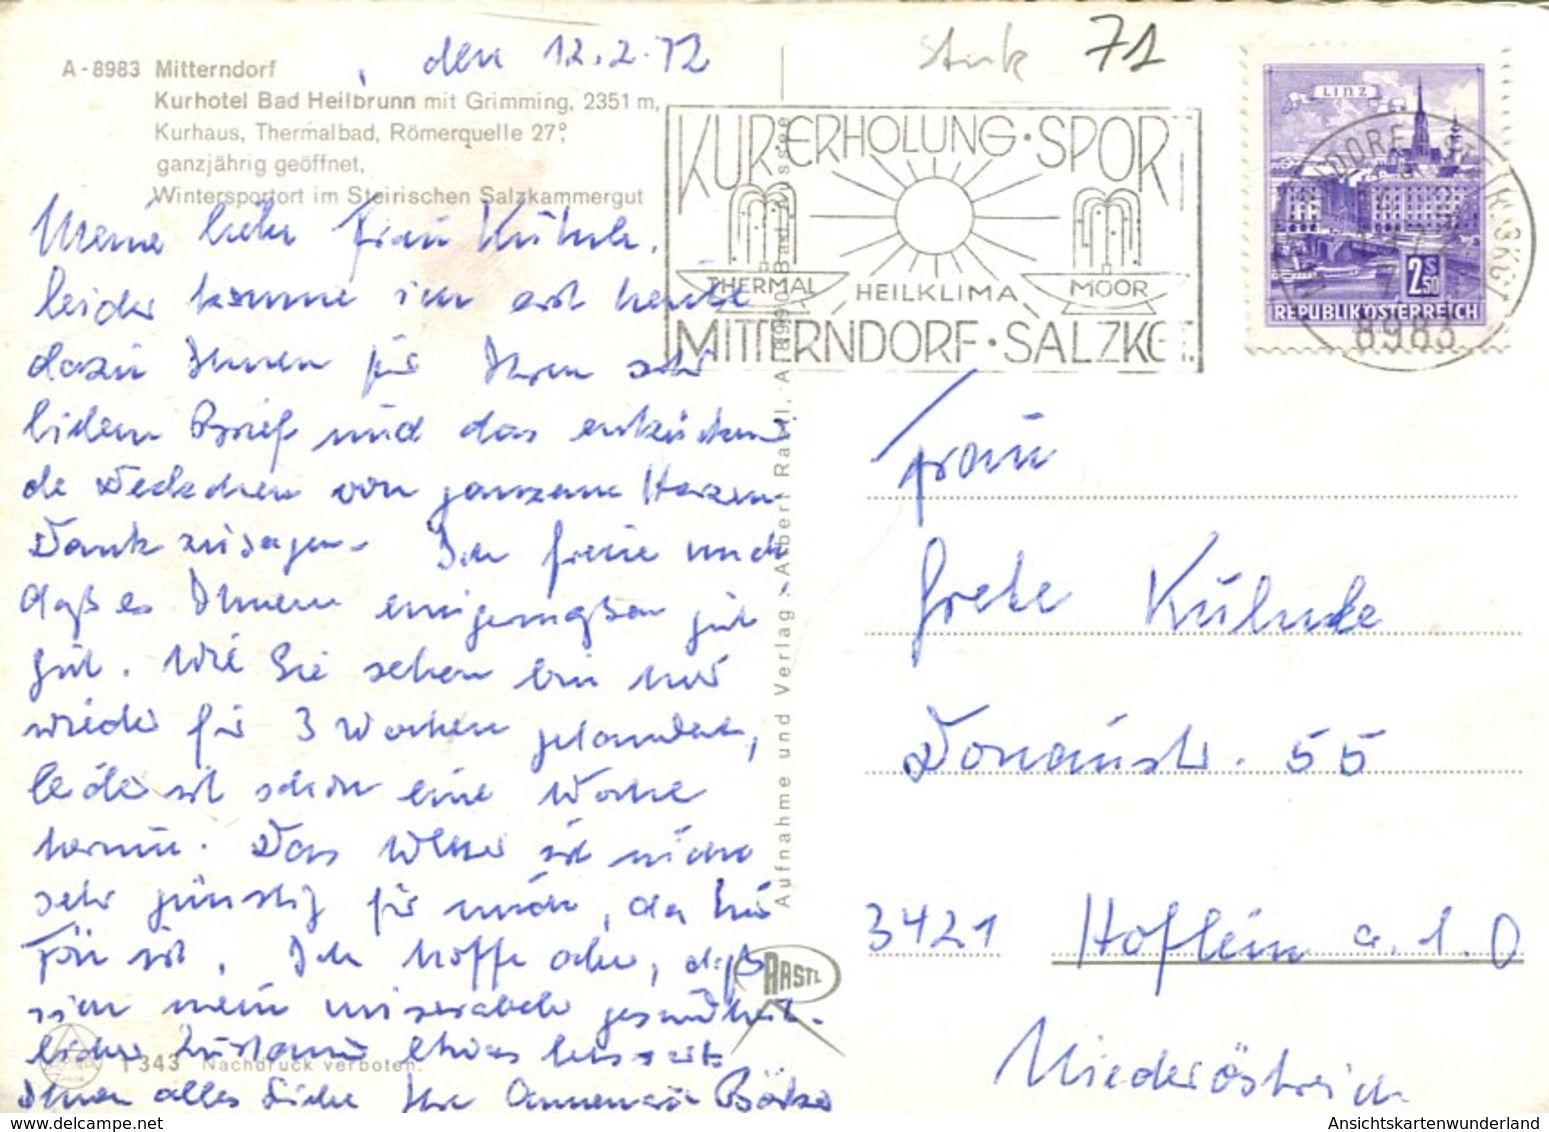 den 12.2.72
Stick 71
A-8983 Mitterndorf
Kurhotel Bad Heilbrunn mit Grimming, 2351 m,
Kurhaus, Thermalbad, Römerquelle 27°,
ganzjährig geöffnet,
Wintersportort im Steirischen Salzkammergut
Meine liebe Frau Kühnle,
leider komme ich erst heute
dazu Ihnen für Ihren sehr
lieben Brief und das entzücken
de Deckchen von ganzem Herzen
Dank zu sagen. Ich freue mich
daß es Ihnen einigermaßen gut
gut. Wie Sie sehen bin hier
wieder für 3 Wochen gelandet,
leider ist schon eine Woche
herum. Das Wetter ist nicht
sehr günstig für mich, da hier
Fön ist. Ich hoffe aber, daß
sich mein miserabler gesundheit-
licher Zustand etwas bessert.
Ihnen alles Liebe Ihre Annemarie
KUR·ERHOLUNG·SPORT
THERMAL HEILKLIMA MOOR
MITTERNDORF·SALZKGT.
LINZ
2 S 50
REPUBLIK ÖSTERREICH
8983
Aufnahme und Verlag: Albert Rastl, A 8990 Bad Aussee
RASTL
T 343 Nachdruck verboten.
Frau
Grete
Donaustr. 55
3421 Höflein a. d. D
Niederöstreich
Ansichtskartenwunderland